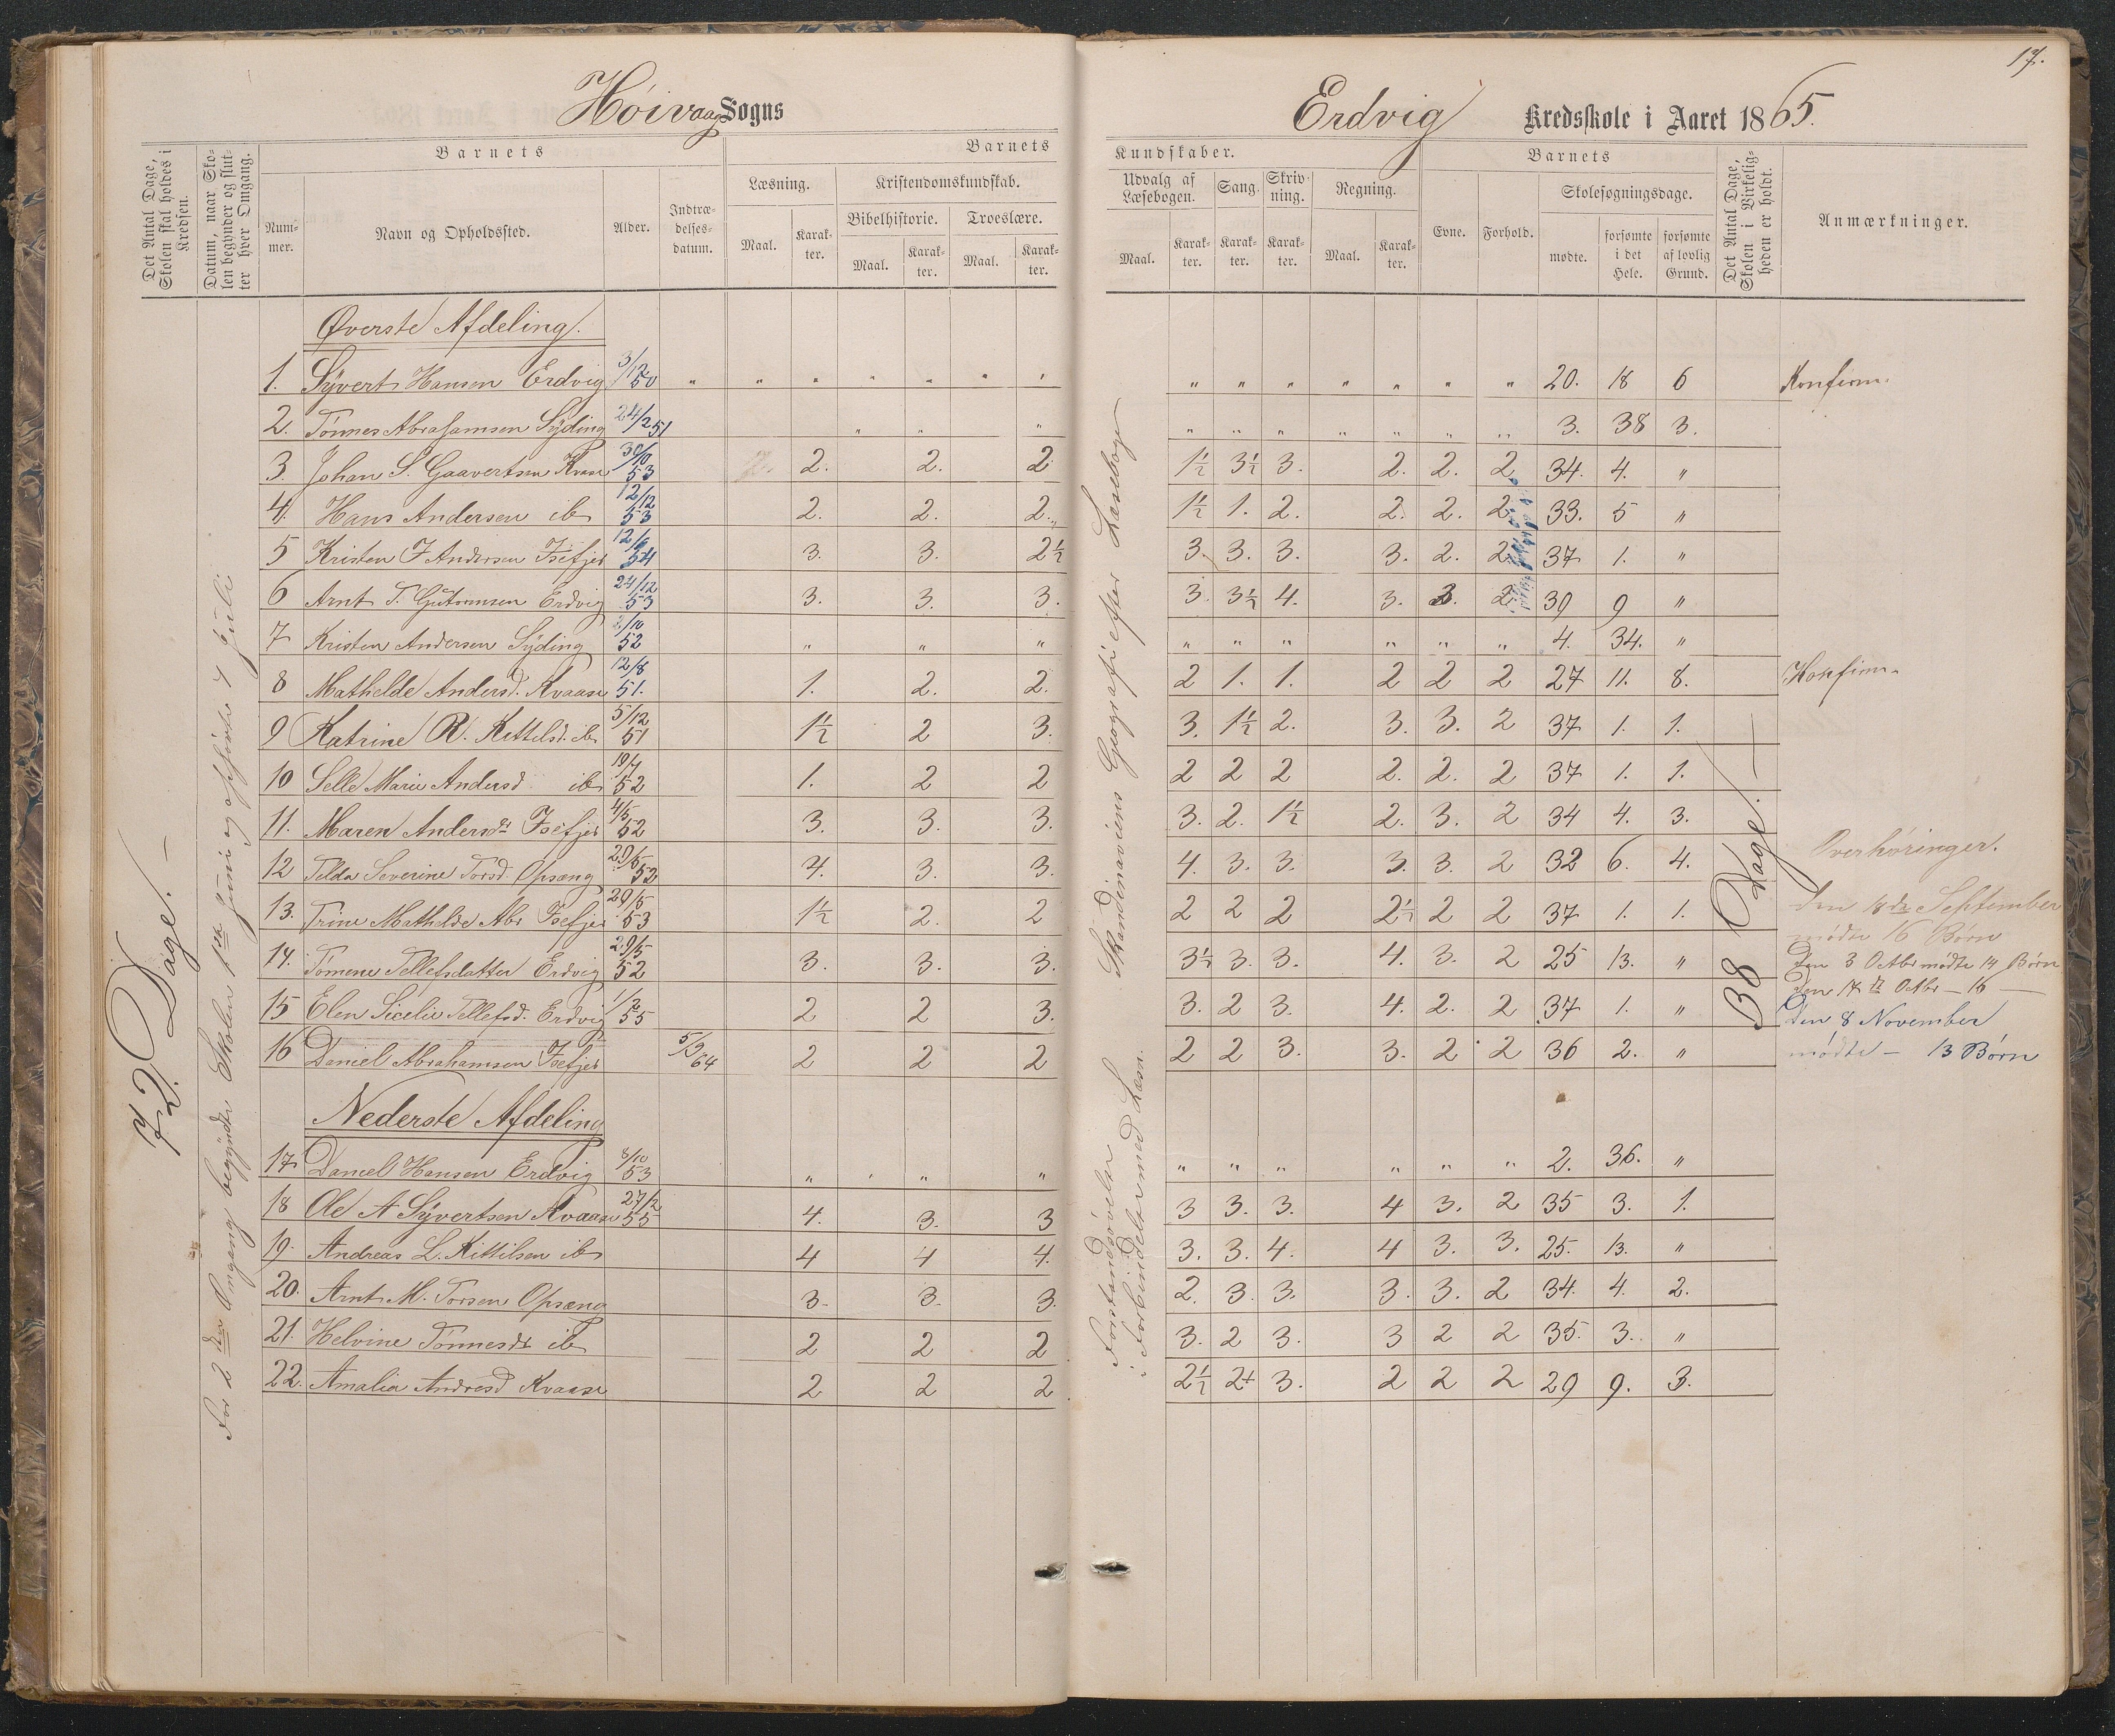 17.
Høivaag Sogns
Erdvig Kredsskole i Aaret 1865.
Det Antal Dage, Skolen skal holdes i Kredsen.
Datum, naar Skolen begynder og slutter hver Omgang.
Barnets
Nummer.
Navn og Opholdssted.
Alder.
Indtrædelsesdatum.
Barnets
Læsning.
Maal.
Karakter.
Kristendomskundskab.
Bibelhistorie.
Maal.
Karakter.
Troeslære.
Maal.
Karakter.
Kundskaber.
Udvalg af Læsebogen.
Maal.
Karakter.
Sang.
Karakter.
Skrivning.
Karakter.
Regning.
Maal.
Karakter.
Barnets
Evne.
Forhold.
Skolesøgningsdage.
mødte.
forsømte i det Hele.
forsømte af lovlig Grund.
Det Antal Dage, Skolen i Virkeligheden er holdt.
Anmærkninger.
72 Dage. —
For 2den Omgang begyndte Skolen 1ste Juni og ophørte 7 Juli
Øverste Afdeling.
1. Syvert Hansen Erdvig 3/12 50 " " " " " " " " " " " " " " 20. 18 6 Konfirm.
2. Tønnes Abrahamsen Syding 24/2 51 " " " " " " " " " 3. 38 3.
3. Johan S. Gaavertsen Kvaase 30/10 53 2. 2. 2 1½ 3½ 3. 2. 2. 2 34. 4. "
4. Hans Andersen ib 12/12 53 2. 2. 2. 1½ 1. 2. 2. 2. 2 33. 5 "
5 Kristen F Andersen Isefjer 12/6 54 3. 3. 2½ 3. 3. 3. 3. 2. 2 37 1. "
6 Arnt T. Gutormsen Erdvig 24/12 53 3. 3. 3. 3. 3½ 4. 3. 3. 2 30 9 "
7 Kristen Andersen Syding 2/10 52 " " " " " " " " " 4. 34. "
8 Mathelde Andersd. Kvaase 12/8 51. 1. 2. 2. 2 1. 1. 2 2 2 27 11. 8. Konfirm.
9 Katrine R. Kittelsd. ib 5/12 51 1½ 2 3. 3. 1½ 2. 3. 3. 2 37 1. 1.
10 Selle Marie Andersd ib 19/7 52 1. 2 2 2 2 2 2. 2. 2 37 1. 1.
11. Maren Andersdt Isefjer 4/5 52 3. 3. 3. 3. 2. 1½ 2. 3. 2 34 4. 3.
12 Telda Severine Torsd. Opsæng 29/5 52 4. 3. 3. 4. 3. 3. 3. 3. 2 32 6. 4.
13. Trine Mathelde Abr Isefjer 29/5 53 1½ 2. 2 2 2 2 2½ 2 2 37 1. 1.
14. Tomene Tellefsdatter Erdvig 29/5 52 3. 3. 3. 3½ 3. 3. 4. 3. 2 25 13. "
15 Elen Sicelie Tellefsd. Erdvig 1/3 55 2 2 3. 3. 2 3. 4. 2. 2 37 1. "
16 Daniel Abrahamsen Isefjer 5/3 64 2 2 2 2 2 3. 3. 2 2 36 2. "
Nederste Afdeling
17 Daniel Hansen Erdvig 8/10 53 " " " " " " " " " 2. 36. "
18 Ole A Syvertsen Kvaase 27/2 55 4. 3. 3 3 3. 3. 4 3. 2 35 3. 1.
19. Andreas L. Kittilsen ib 4 4 4. 3. 3. 4. 4 3. 3. 25. 13. "
20. Arnt M. Torsen Opsæng 3. 3. 3. 2. 3. 3. 3. 3. 2 34. 4. 2.
21. Helvine Tønnesdt ib 2 2 2 3. 2 3. 3 2 2 35. 3. "
22. Amalia Andresd Kvaase 2 2 2 2½ 2½ 3. 2 2 2 29 9. 3.
Skandinaviens Geografi efter Læsebogen
Forstandsøvelser i Forbindelse med Læsn.
38 Dage. —
Overhøringer.
Den 18de September
mødte 16 Børn
Den 3 Octbr mødte 14 Børn
Den 17de Octbr — 16 —
Den 8 November
mødte — 13 Børn